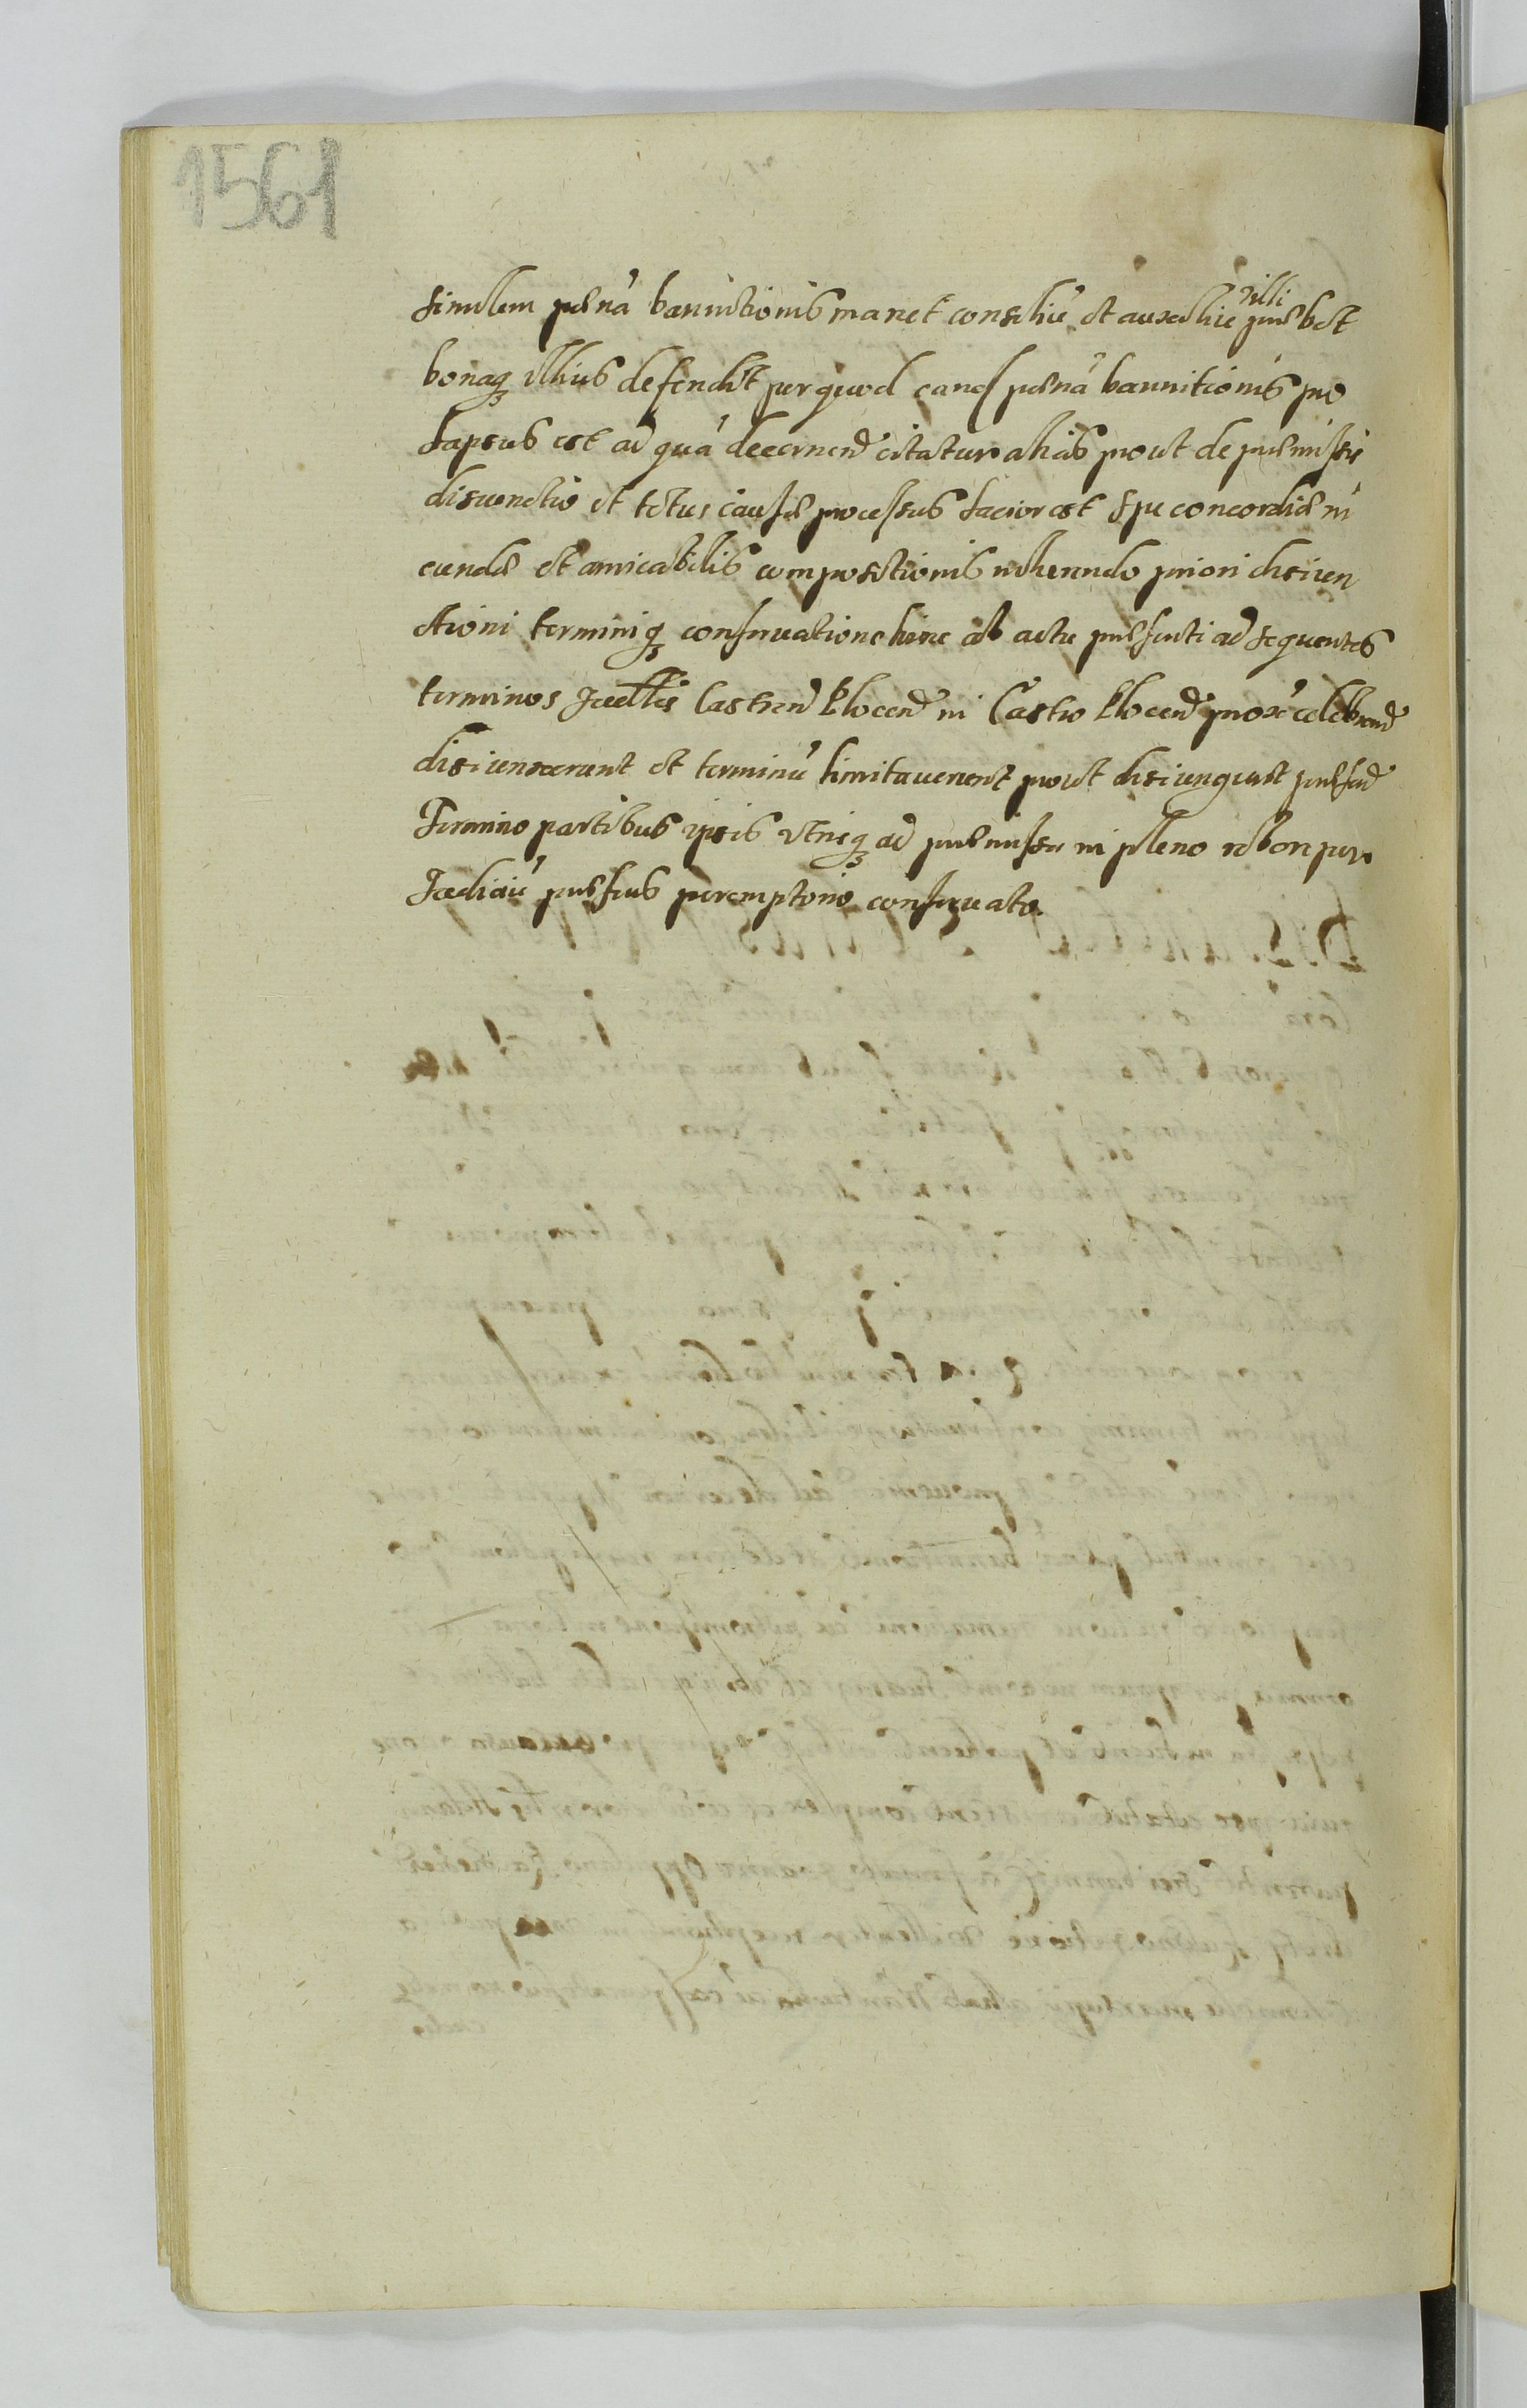 1561
similem pænã bannitionis manet consiliũ et auxiliũ illi præbet
bonaq illius defendit per quod eand pænã bannitionis pro
lapsus est ad quã decernend citatur alias prout de præmissis
disiunctio et totus causæ processus lacior est Spe concordiæ in
eundæ et amicabilis compositionis inhærendo priori disiun
ctioni terminiq conservatione hinc ab actu præsenti ad sequentes
terminos Castren Plocen in Castro Plocen prox celebrand
disiunxerunt et terminũ limitaverunt prout disiungunt
Termino partibus ipsis utrisq ad præmissa in pleno robore per
Iudiciũ præsens peremptorie conservato.